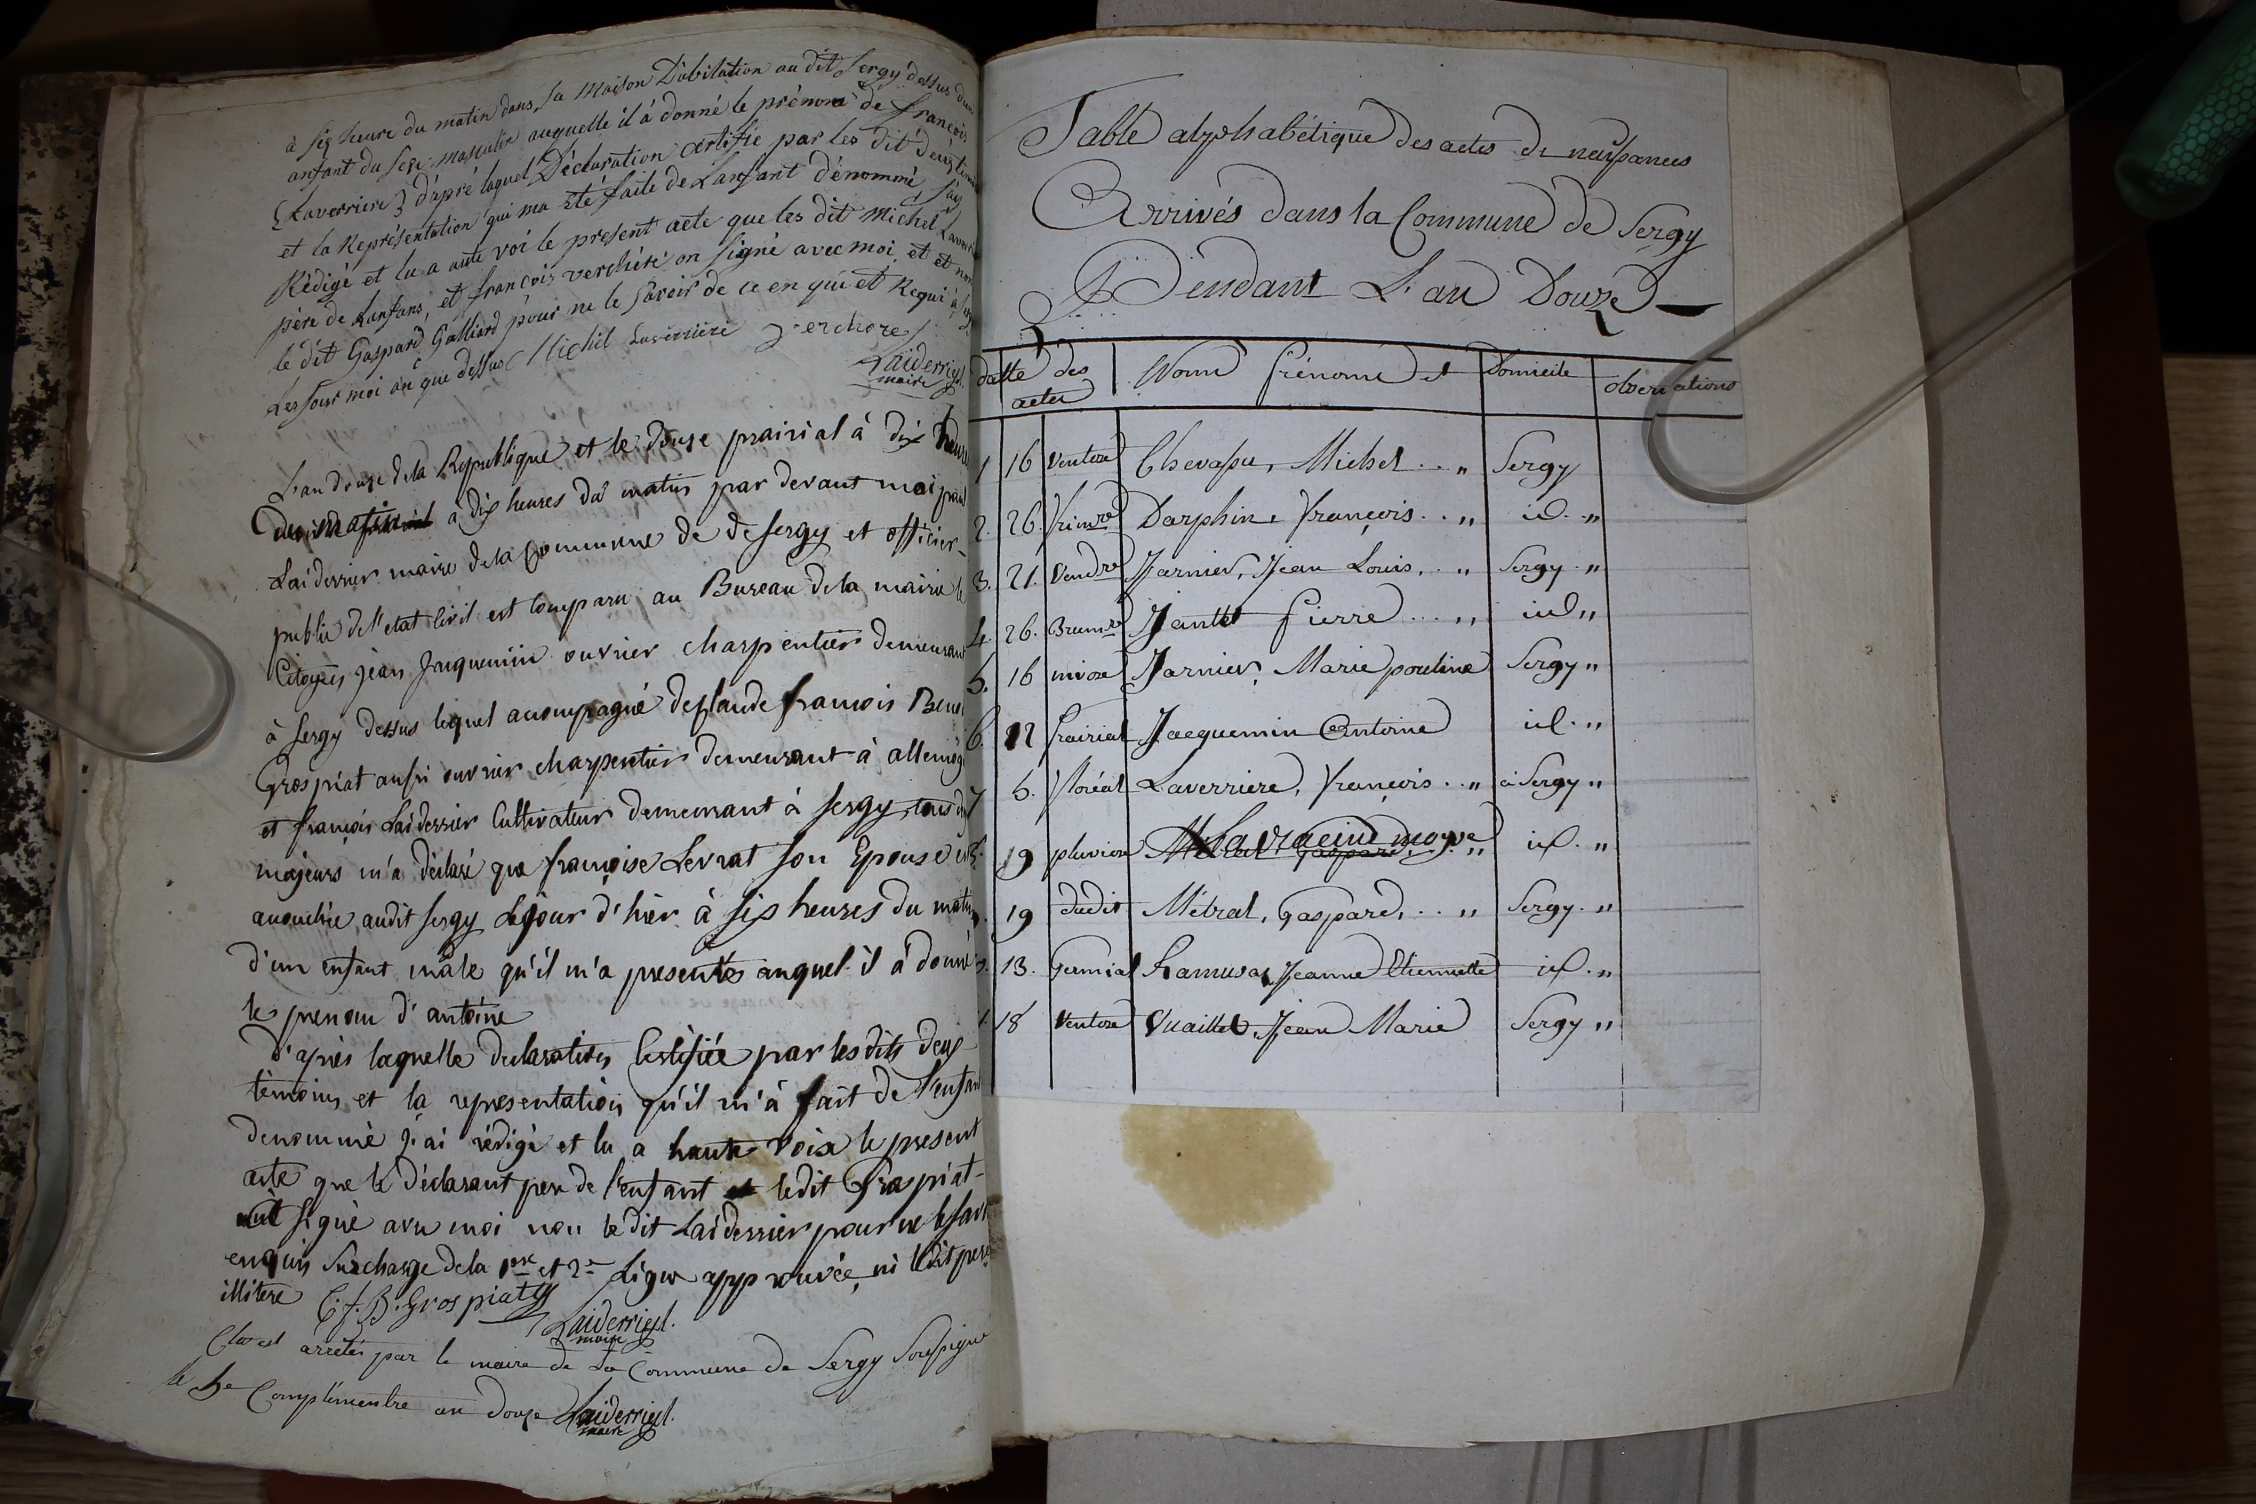 à six heure du matin dans sa maison D'abitation au dit Sergy dessus d'un
anfant du sexe masculin auquelle il à donné le prénom de françois
Laverriere d'apré laquel Déclaration certifie par les dit deux témoin
et la Représentation qui ma été faite de Lanfant dénommé j'ay
Rédigé et lu a aute voi le présent acte que les dit michel Laverriere
père de Lanfans, et françois verchere on signé avec moi, et et non
le dit Gaspard Galliard pour ne le savoir de ce en qui et Requi
Michel Laverriere verchere
Laiderrier
maire
L'an douze dela Republique et le douze prairial à dix heure
à dix heures du matin par devant moi
Laiderrier maire dela Commune de de Sergy et officier
public de l'etat Civil est comparu au Bureau dela mairie le
Citoyen jean Jaquemin ouvrier charpentier demeurant
à Sergy dessus lequel acompagné de Claude françois Benoi
Grospiat aussi ouvrier charpentier demeurant à allemog
et françois Laiderrier Cultivateur demeurant à Sergy tous deux
majeurs m'a déclaré que françoise Levrat son Epouse est
accouchée audit Sergy le jour d'hier à six heures du matin
d'un enfant mâle qu'il m'a presenté auquel il à donné
le prenom d'antoine
D'après laquelle declaration Certifiée par les dits deux
témoins et la representation qu'il m'à fait de l'enfant
denommé j'ai rédigé et lu a haute voix le present
acte que le déclarant pere de l'enfant et ledit Grospiat
ont signé avec moi non le dit Laiderrier pour ne le savoir
enquis Surcharge dela 1ere et 2e Ligne approuvée ni ledit pere
illitere C. f. B. Grospiat
Laiderrier
maire
Clos et arrêtés par le maire de La Commune de Sergy Soussigné
le 5e Complémentre an douze Laiderrier
maire
Table alphabétique des actes de naissances
Arrivés dans la Commune de Sergy
Pendant L'an Douze
datte des actes Nom Prénom et Domicile observations
1 16 ventose Chevassu, Michel .. " Sergy
2. 26. frimre Darphin, François .. " id. "
3. 21. Vendre Jarnier, Jean Louis, .. " Sergy "
4. 26. Brumre Jantet Pierre ... " id "
5. 16 nivose Jarnier, Marie pouline Sergy "
6. 12 Prairial Jacquemin Antoine id. "
7 5. floréal Laverriere, François .. " à Sergy "
19 pluviose id. "
19 dudit Métral, Gaspard, .. " Sergy. "
13. Germial Ramusat Jeanne Etiennette id. "
18 Ventose Vuaillet, Jean Marie Sergy "